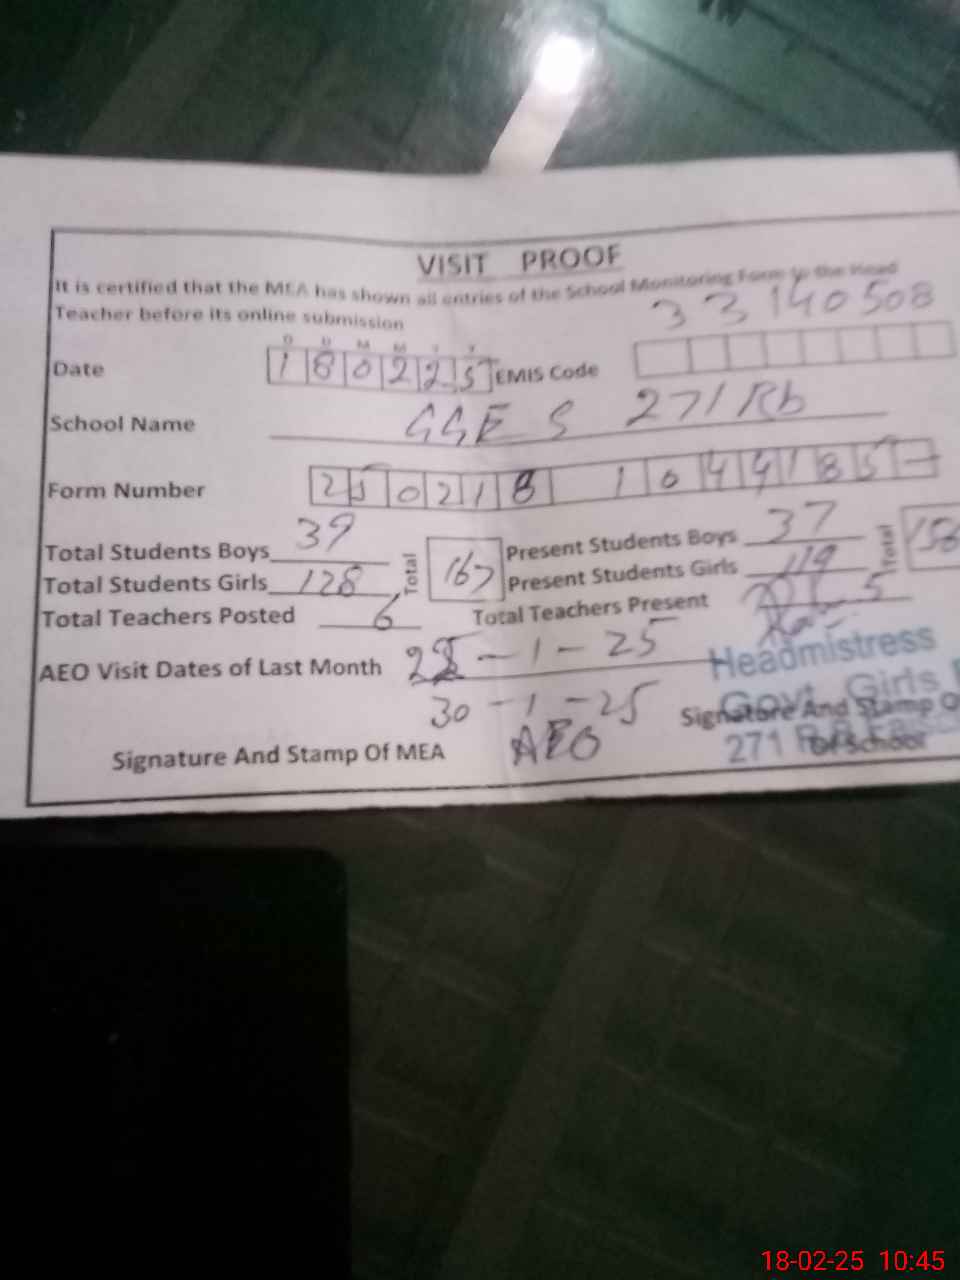 VISIT PROOF
It is certified that the MEA has shown all entries of the School Monitoring Form to the Head
Teacher before its online submission
33140508
D D M M Y Y
Date 180225 EMIS Code
School Name GGES 271/Rb
Form Number 250218 10441857
Total Students Boys 39 Total 167 Present Students Boys 37 Total 156
Total Students Girls 128 Present Students Girls 119
Total Teachers Posted 6 Total Teachers Present 5
AEO Visit Dates of Last Month -1-25
30-1-25
Headmistress
Govt. Girls
Signature And Stamp Of MEA AEO Signature And Stamp O
271 Of School
18-02-25 10:45